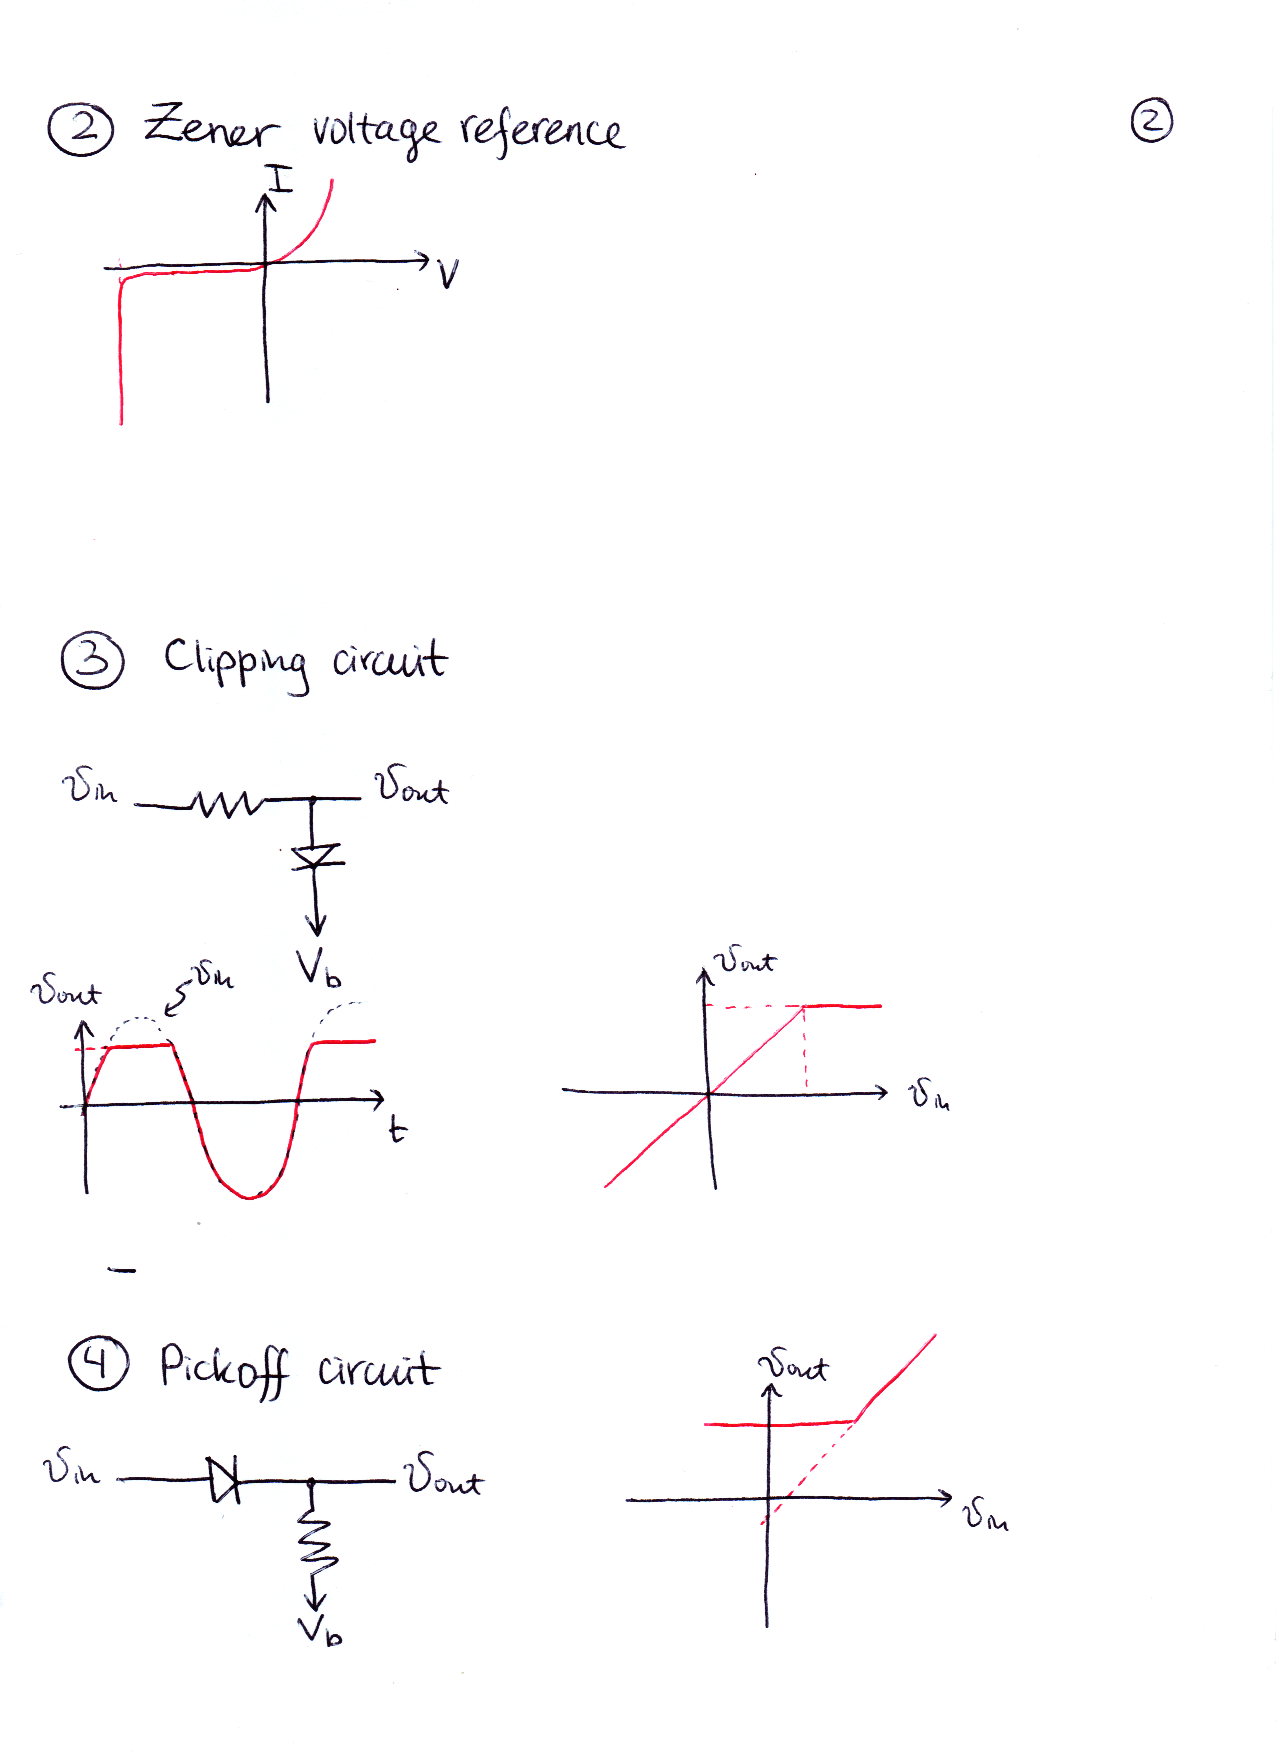 ② Zener voltage reference
②
I
V
③ Clipping circuit
vin
vout
Vb
vout
vin
t
vout
vin
④ Pickoff circuit
vout
vin
vout
vin
Vb